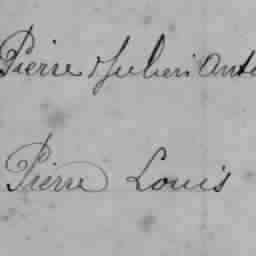 Pierre Julien Ant
Pierre Louis